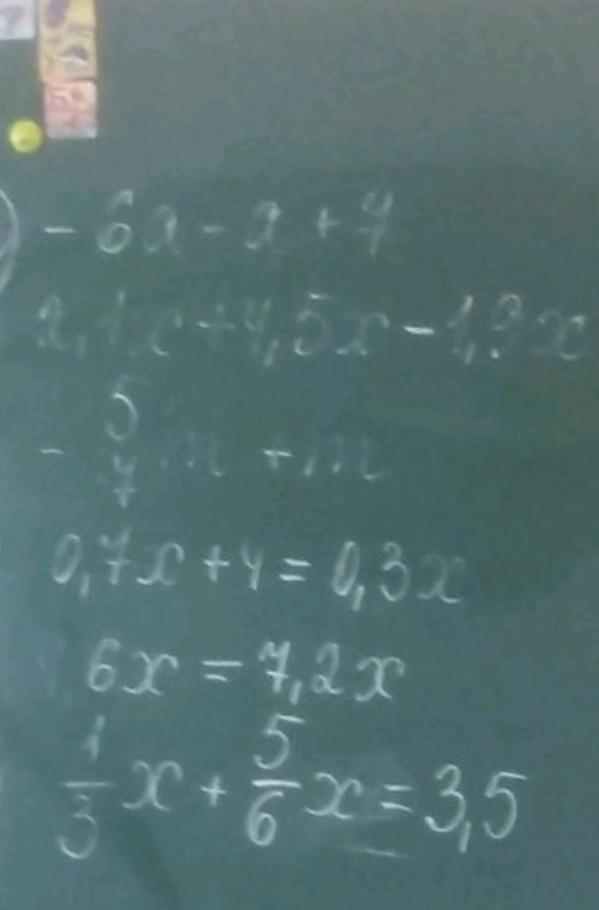 - 6a - a + 7
2,1x + 4,5x - 1,9x
- 5/7 m + m
0,7x + 4 = 0,3x
6x = 7,2x
1/3 x + 5/6 x = 3,5